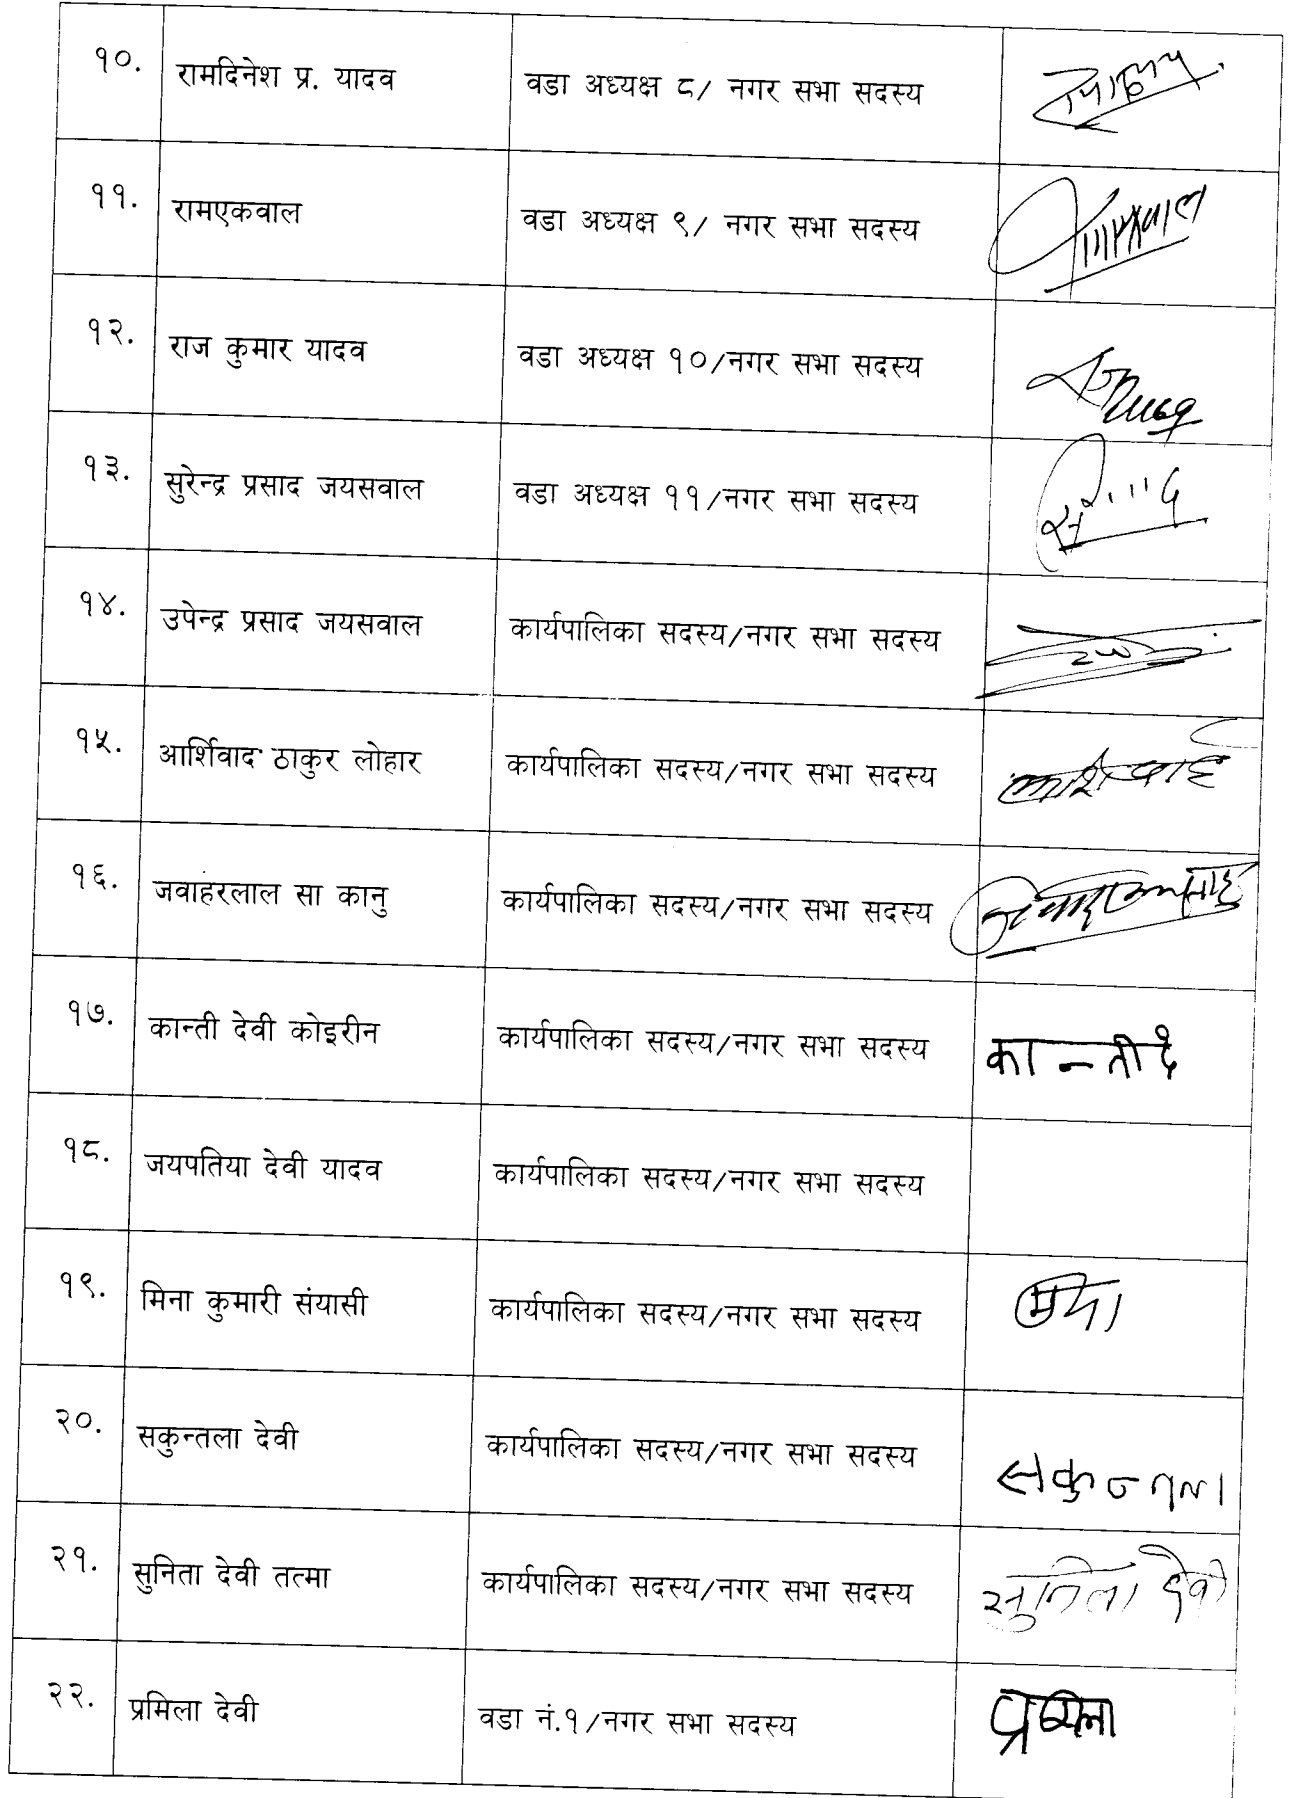 १०. रामदिनेश प्र. यादव वडा अध्यक्ष ८/ नगर सभा सदस्य
११. रामएकवाल वडा अध्यक्ष ९/ नगर सभा सदस्य
१२. राज कुमार यादव वडा अध्यक्ष १०/नगर सभा सदस्य
१३. सुरेन्द्र प्रसाद जयसवाल वडा अध्यक्ष ११/नगर सभा सदस्य
१४. उपेन्द्र प्रसाद जयसवाल कार्यपालिका सदस्य/नगर सभा सदस्य
१५. आर्शिवाद ठाकुर लोहार कार्यपालिका सदस्य/नगर सभा सदस्य
१६. जवाहरलाल सा कानु कार्यपालिका सदस्य/नगर सभा सदस्य
१७. कान्ती देवी कोइरीन कार्यपालिका सदस्य/नगर सभा सदस्य
१८. जयपतिया देवी यादव कार्यपालिका सदस्य/नगर सभा सदस्य
१९. मिना कुमारी संयासी कार्यपालिका सदस्य/नगर सभा सदस्य
२०. सकुन्तला देवी कार्यपालिका सदस्य/नगर सभा सदस्य सकुन्तला
२१. सुनिता देवी तत्मा कार्यपालिका सदस्य/नगर सभा सदस्य सुनिता देवी
२२. प्रमिला देवी वडा नं.१/नगर सभा सदस्य प्रमिला